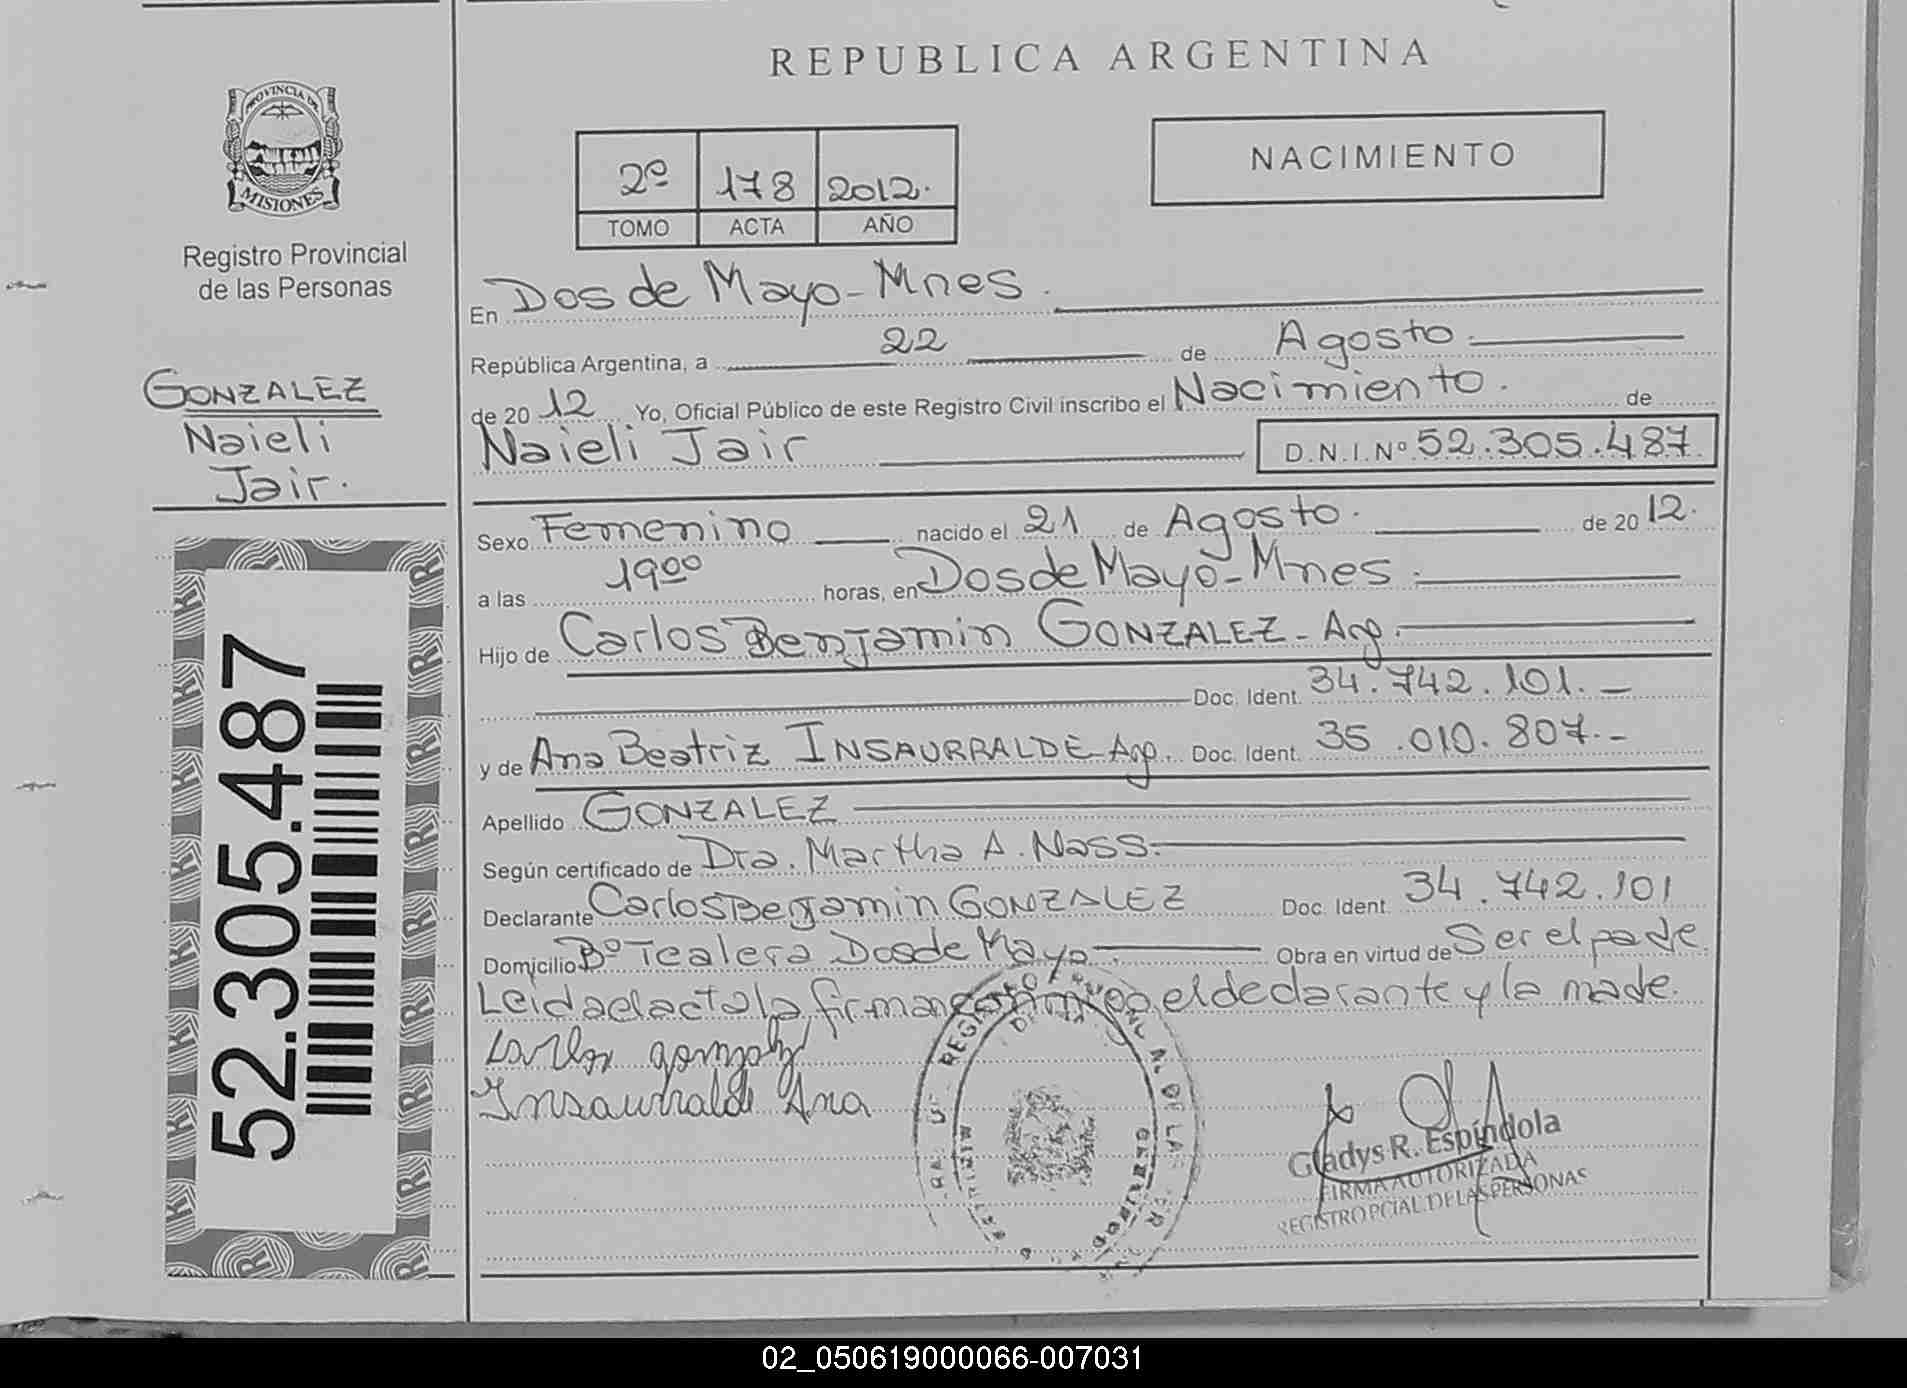 REPUBLICA ARGENTINA
PROVINCIA DE
MISIONES
Registro Provincial
de las Personas
NACIMIENTO
2º 178 2012.
TOMO ACTA AÑO
GONZALEZ
Naieli
Jair.
52.305.487
En Dos de Mayo - Mnes.
República Argentina, a 22 de Agosto
de 20 12 Yo, Oficial Público de este Registro Civil inscribo el Nacimiento. de
Naieli Jair D.N.I.Nº 52.305.487
Sexo Femenino nacido el 21 de Agosto. de 20 12.
a las 19 00 horas, en Dos de Mayo - Mnes.
Hijo de Carlos Benjamin GONZALEZ - Arg.
Doc. Ident. 34.742.101.-
y de Ana Beatriz INSAURRALDE - Arg. Doc. Ident. 35.010.807.-
Apellido GONZALEZ
Según certificado de Dra. Martha A. Nass.
Declarante Carlos Benjamin GONZALEZ Doc. Ident. 34.742.101
Domicilio Bº Tealera Dos de Mayo. Obra en virtud de Ser el padre
Leida el acta la firman conmigo el declarante y la madre.
Carlos gonzalz
Insaurralde Ana
Gladys R. Espíndola
FIRMA AUTORIZADA
REGISTRO PCIAL. DE LAS PERSONAS
02_050619000066-007031